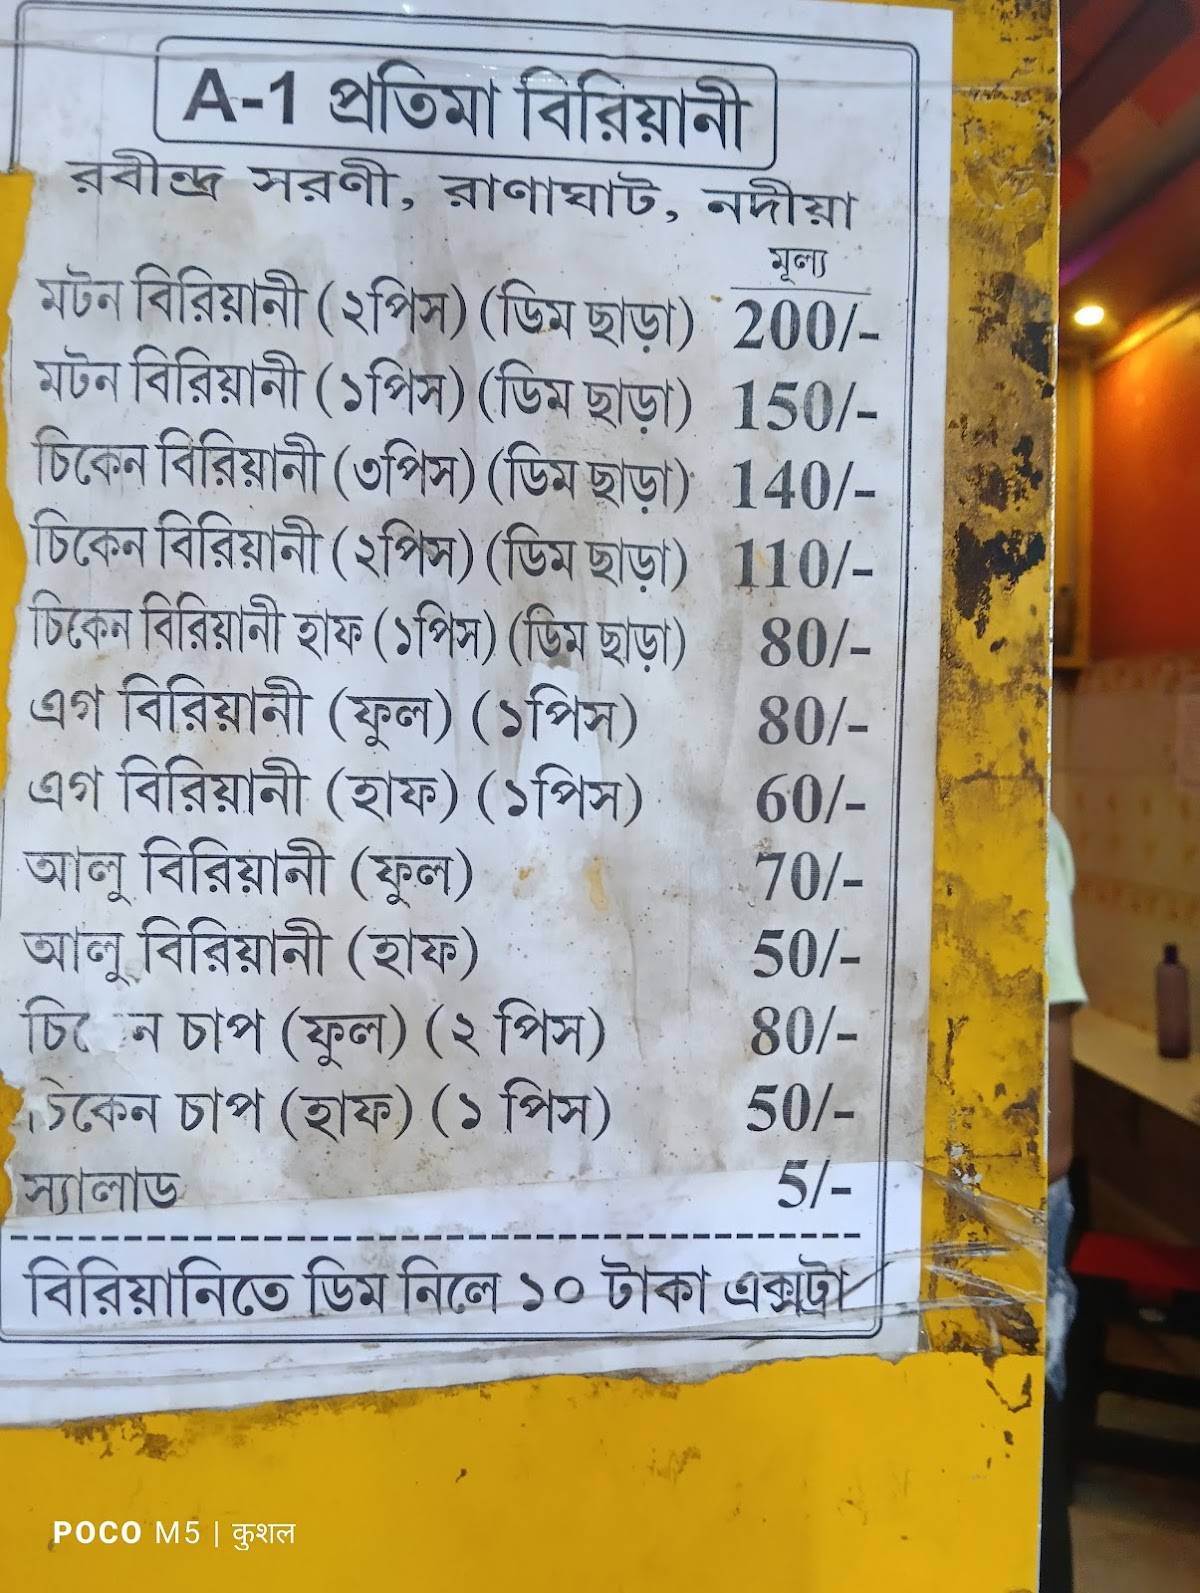 A-1 প্রতিমা বিরিয়ানী
রবীন্দ্র সরণী, রাণাঘাট, নদীয়া
মূল্য
মটন বিরিয়ানী (২পিস) (ডিম ছাড়া) 200/-
মটন বিরিয়ানী (১পিস) (ডিম ছাড়া) 150/-
চিকেন বিরিয়ানী (৩পিস) (ডিম ছাড়া) 140/-
চিকেন বিরিয়ানী (২পিস) (ডিম ছাড়া) 110/-
চিকেন বিরিয়ানী হাফ (১পিস) (ডিম ছাড়া) 80/-
এগ বিরিয়ানী (ফুল) (১পিস) 80/-
এগ বিরিয়ানী (হাফ) (১পিস) 60/-
আলু বিরিয়ানী (ফুল) 70/-
আলু বিরিয়ানী (হাফ) 50/-
চাপ (ফুল) (২ পিস) 80/-
চিকেন চাপ (হাফ) (১ পিস) 50/-
স্যালাড 5/-
বিরিয়ানিতে ডিম নিলে ১০ টাকা এক্সট্রা
POCO M5 | कुशल